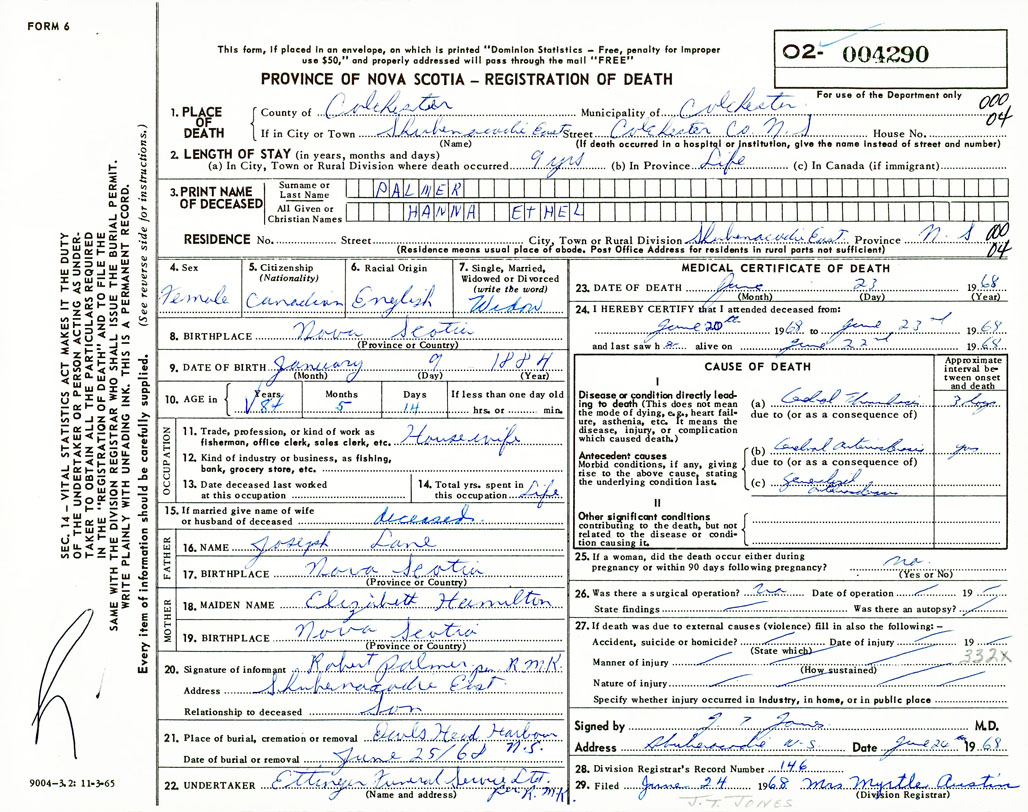 FORM 6
This form, if placed in an envelope, on which is printed "Dominion Statistics – Free, penalty for improper
use $50," and properly addressed will pass through the mail "FREE"
PROVINCE OF NOVA SCOTIA – REGISTRATION OF DEATH
O2- 004290
For use of the Department only
000
04
1. PLACE OF DEATH
County of Colchester Municipality of Colchester
If in City or Town Shubenacadie East Street Colchester Co. N.S House No.
(Name) (If death occurred in a hospital or institution, give the name instead of street and number)
2. LENGTH OF STAY (in years, months and days)
(a) In City, Town or Rural Division where death occurred 9 yrs (b) In Province Life (c) In Canada (if immigrant)
3. PRINT NAME OF DECEASED
Surname or Last Name PALMER
All Given or Christian Names HANNA ETHEL
RESIDENCE No. Street City, Town or Rural Division Shubenacadie East Province N.S
(Residence means usual place of abode. Post Office Address for residents in rural parts not sufficient)
000
04
4. Sex Female
5. Citizenship (Nationality) Canadian
6. Racial Origin English
7. Single, Married, Widowed or Divorced (write the word) Widow
8. BIRTHPLACE Nova Scotia
(Province or Country)
9. DATE OF BIRTH January 9 1884
(Month) (Day) (Year)
10. AGE in Years 84 Months 5 Days 14 If less than one day old hrs. or min.
OCCUPATION
11. Trade, profession, or kind of work as fisherman, office clerk, sales clerk, etc. Housewife
12. Kind of industry or business, as fishing, bank, grocery store, etc.
13. Date deceased last worked at this occupation
14. Total yrs. spent in this occupation Life
15. If married give name of wife or husband of deceased deceased.
FATHER
16. NAME Joseph Lane
17. BIRTHPLACE Nova Scotia
(Province or Country)
MOTHER
18. MAIDEN NAME Elizabeth Hamilton
19. BIRTHPLACE Nova Scotia
(Province or Country)
20. Signature of informant Robert Palmer per R.M.K.
Address Shubenacadie East
Relationship to deceased Son
21. Place of burial, cremation or removal Head Harbour N.S.
Date of burial or removal June 25/68
22. UNDERTAKER Ettinger Funeral Service Ltd. per R.M.K.
(Name and address)
MEDICAL CERTIFICATE OF DEATH
23. DATE OF DEATH June 23 1968
(Month) (Day) (Year)
24. I HEREBY CERTIFY that I attended deceased from:
June 20th 1968 to June 23rd 1968
and last saw her alive on June 22nd 1968
CAUSE OF DEATH
Approximate interval between onset and death
I
Disease or condition directly leading to death (This does not mean the mode of dying, e.g., heart failure, asthenia, etc. It means the disease, injury, or complication which caused death.)
(a) Cerebral Thrombosis 3 days
due to (or as a consequence of)
Antecedent causes
Morbid conditions, if any, giving rise to the above cause, stating the underlying condition last.
(b) Cerebral arteriosclerosis yrs
due to (or as a consequence of)
(c) Generalized arteriosclerosis
II
Other significant conditions contributing to the death, but not related to the disease or condition causing it.
25. If a woman, did the death occur either during pregnancy or within 90 days following pregnancy? no.
(Yes or No)
26. Was there a surgical operation? no Date of operation 19
State findings Was there an autopsy?
27. If death was due to external causes (violence) fill in also the following:–
Accident, suicide or homicide? Date of injury 19
(State which)
332X
Manner of injury
(How sustained)
Nature of injury
Specify whether injury occurred in industry, in home, or in public place
Signed by J. T. Jones M.D.
Address Shubenacadie N.S. Date June 24th 1968
28. Division Registrar's Record Number 146
29. Filed June 24 1968 Mrs Myrtle Austin
(Division Registrar)
J.T. JONES
SEC. 14 – VITAL STATISTICS ACT MAKES IT THE DUTY
OF THE UNDERTAKER OR PERSON ACTING AS UNDER-
TAKER TO OBTAIN ALL THE PARTICULARS REQUIRED
IN THE "REGISTRATION OF DEATH" AND TO FILE THE
SAME WITH THE DIVISION REGISTRAR WHO SHALL ISSUE THE BURIAL PERMIT.
WRITE PLAINLY WITH UNFADING INK. THIS IS A PERMANENT RECORD.
Every item of information should be carefully supplied. (See reverse side for instructions.)
9004–3.2: 11-3-65